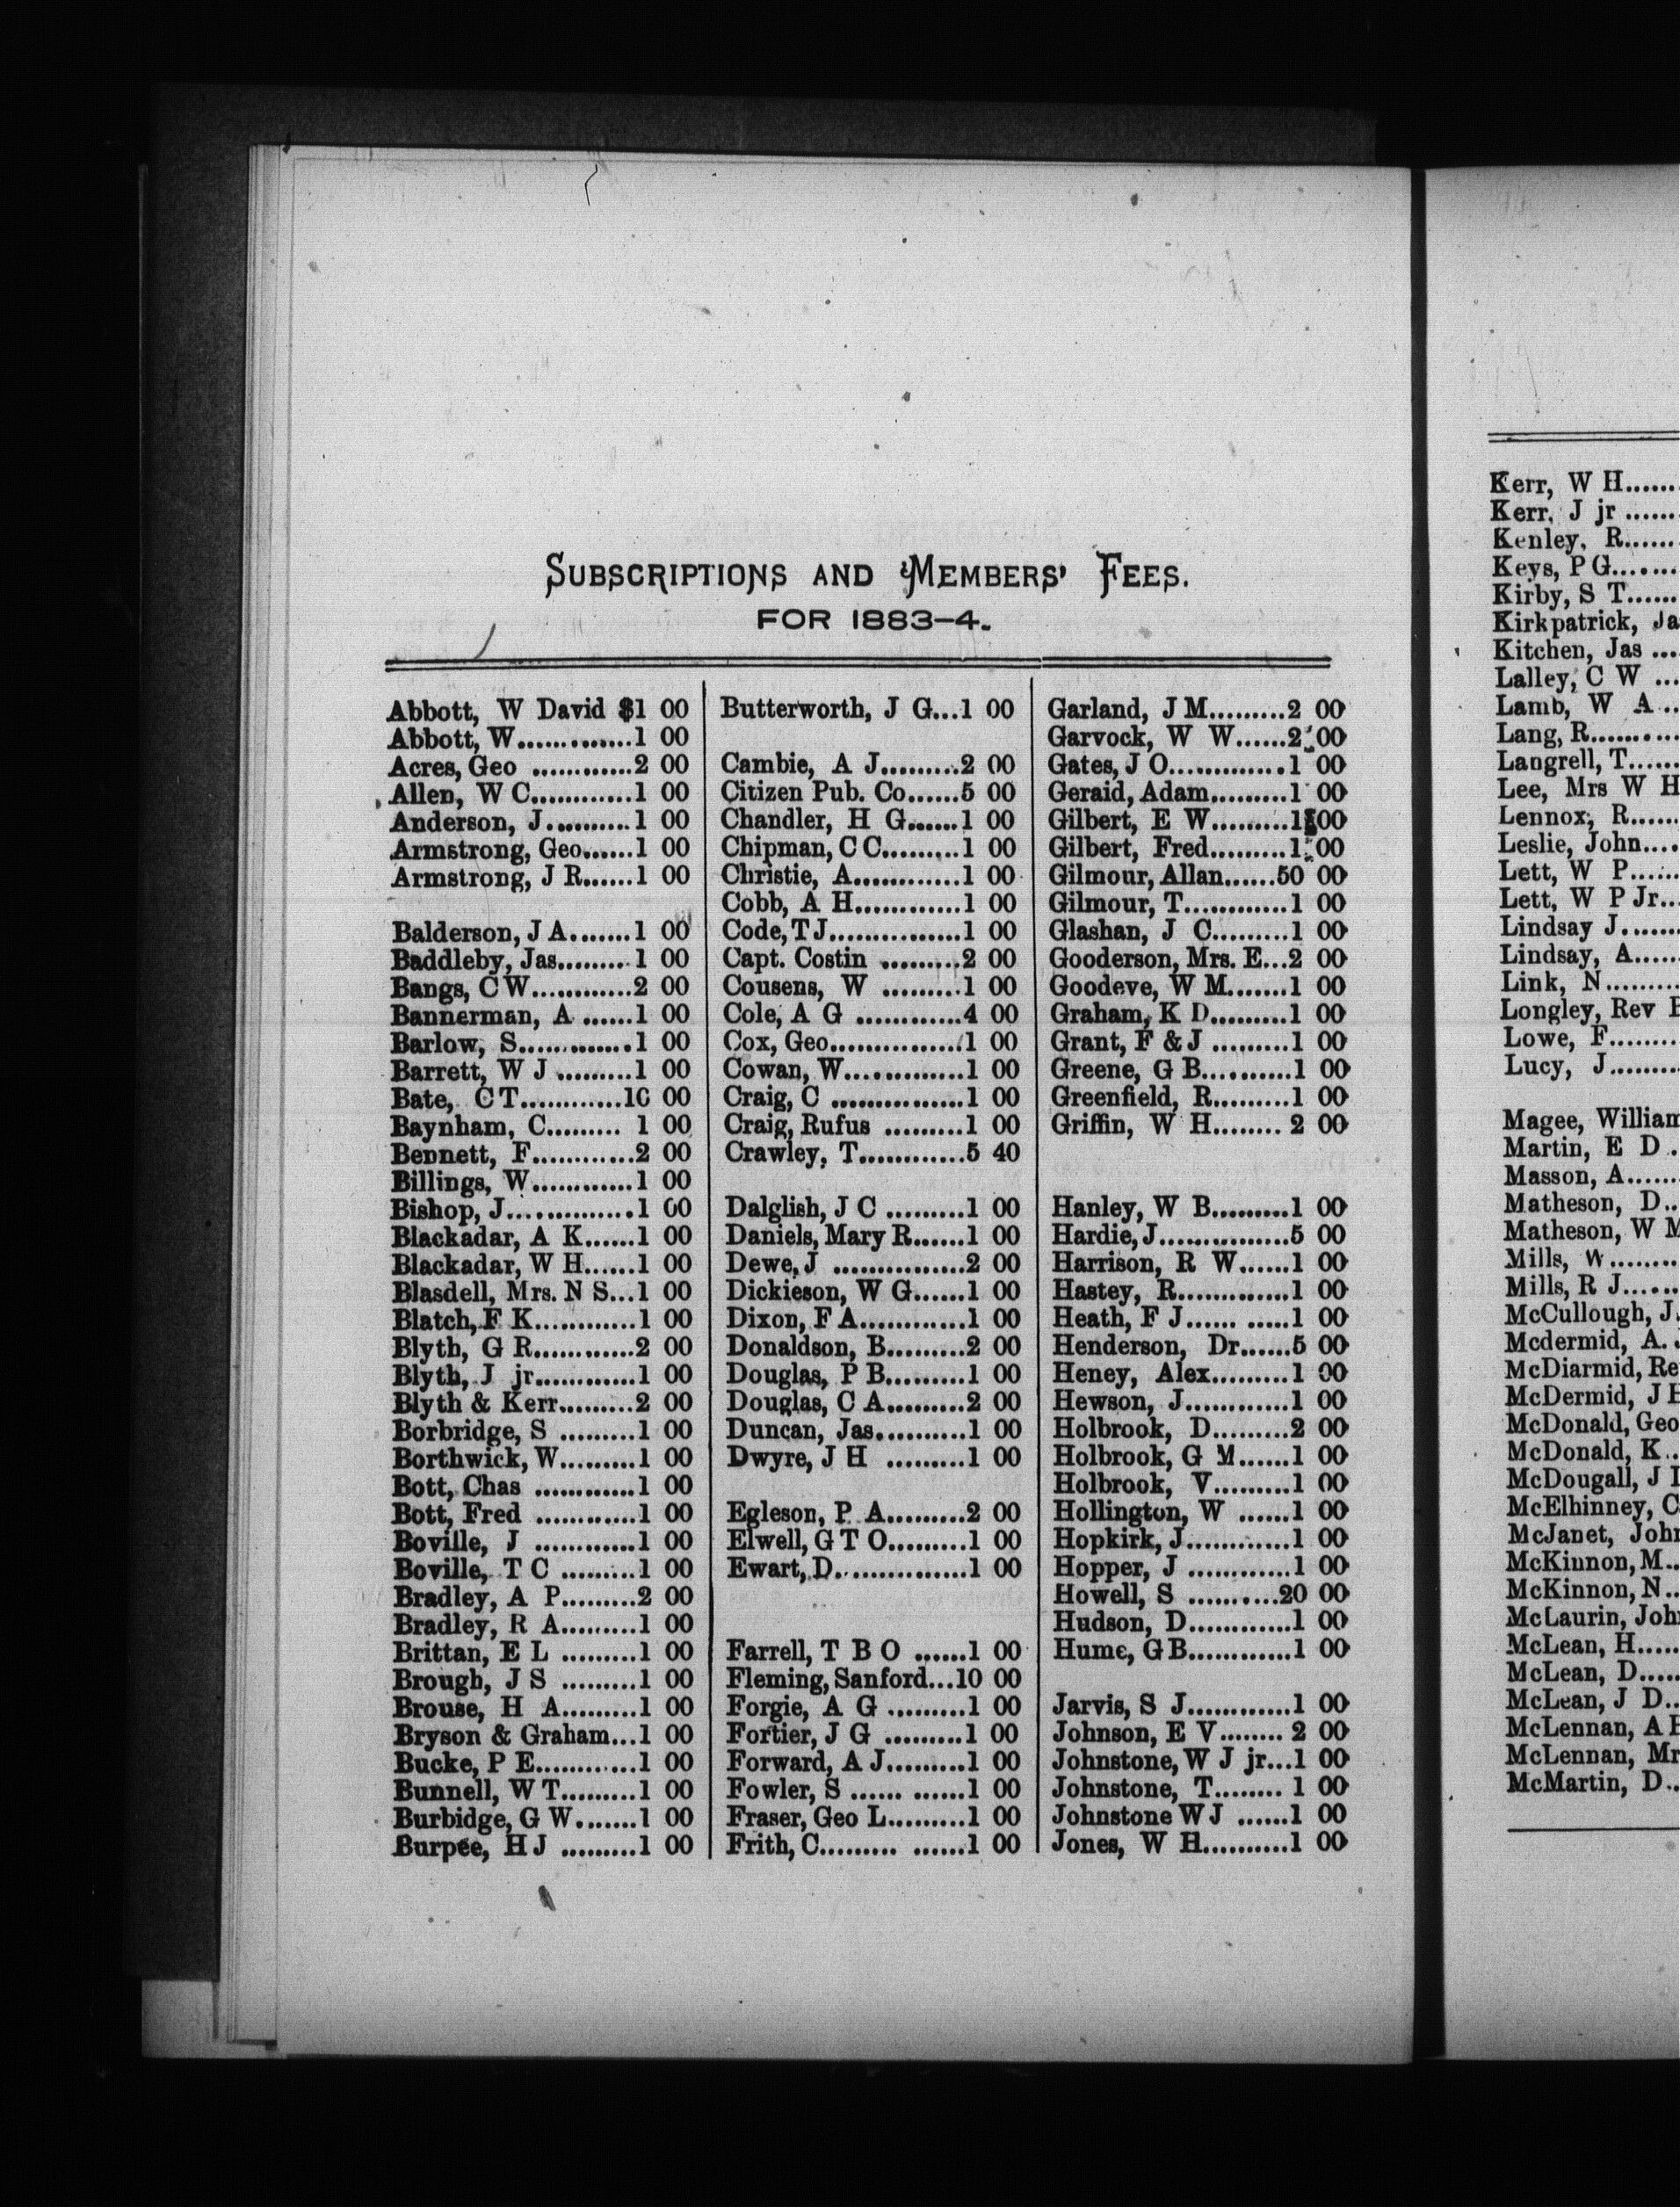 SUBSCRIPTIONS AND MEMBERS' FEES.
FOR 1883-4.
Abbott, W David $1 00
Abbott, W.............1 00
Acres, Geo ............2 00
Allen, W C............1 00
Anderson, J..........1 00
Armstrong, Geo......1 00
Armstrong, J R......1 00
Balderson, J A.......1 00
Baddleby, Jas.........1 00
Bangs, C W............2 00
Bannerman, A ......1 00
Barlow, S.............1 00
Barrett, W J .........1 00
Bate, C T............10 00
Baynham, C......... 1 00
Bennett, F............2 00
Billings, W............1 00
Bishop, J..............1 00
Blackadar, A K......1 00
Blackadar, W H......1 00
Blasdell, Mrs. N S...1 00
Blatch, F K............1 00
Blyth, G R............2 00
Blyth, J jr............1 00
Blyth & Kerr.........2 00
Borbridge, S .........1 00
Borthwick, W.........1 00
Bott, Chas ............1 00
Bott, Fred ............1 00
Boville, J ............1 00
Boville, T C .........1 00
Bradley, A P.........2 00
Bradley, R A.........1 00
Brittan, E L .........1 00
Brough, J S .........1 00
Brouse, H A.........1 00
Bryson & Graham...1 00
Bucke, P E............1 00
Bunnell, W T.........1 00
Burbidge, G W.......1 00
Burpee, H J .........1 00
Butterworth, J G...1 00
Cambie, A J.........2 00
Citizen Pub. Co......5 00
Chandler, H G......1 00
Chipman, C C.........1 00
Christie, A............1 00
Cobb, A H............1 00
Code, T J...............1 00
Capt. Costin .........2 00
Cousens, W .........1 00
Cole, A G ............4 00
Cox, Geo...............1 00
Cowan, W.............1 00
Craig, C ...............1 00
Craig, Rufus .........1 00
Crawley, T............5 40
Dalglish, J C .........1 00
Daniels, Mary R......1 00
Dewe, J ...............2 00
Dickieson, W G......1 00
Dixon, F A............1 00
Donaldson, B.........2 00
Douglas, P B.........1 00
Douglas, C A.........2 00
Duncan, Jas..........1 00
Dwyre, J H .........1 00
Egleson, P A.........2 00
Elwell, G T O.........1 00
Ewart, D...............1 00
Farrell, T B O ......1 00
Fleming, Sanford...10 00
Forgie, A G .........1 00
Fortier, J G .........1 00
Forward, A J.........1 00
Fowler, S ...... ......1 00
Fraser, Geo L.........1 00
Frith, C......... ......1 00
Garland, J M.........2 00
Garvock, W W......2 00
Gates, J O.............1 00
Geraid, Adam.........1 00
Gilbert, E W.........1 00
Gilbert, Fred.........1 00
Gilmour, Allan......50 00
Gilmour, T............1 00
Glashan, J C.........1 00
Gooderson, Mrs. E...2 00
Goodeve, W M.......1 00
Graham, K D.........1 00
Grant, F & J .........1 00
Greene, G B..........1 00
Greenfield, R.........1 00
Griffin, W H........ 2 00
Hanley, W B.........1 00
Hardie, J...............5 00
Harrison, R W......1 00
Hastey, R.............1 00
Heath, F J...... .....1 00
Henderson, Dr......5 00
Heney, Alex.........1 00
Hewson, J............1 00
Holbrook, D.........2 00
Holbrook, G M......1 00
Holbrook, V.........1 00
Hollington, W ......1 00
Hopkirk, J............1 00
Hopper, J ............1 00
Howell, S ..........20 00
Hudson, D............1 00
Hume, G B............1 00
Jarvis, S J............1 00
Johnson, E V........ 2 00
Johnstone, W J jr...1 00
Johnstone, T........ 1 00
Johnstone W J ......1 00
Jones, W H..........1 00
Kerr, W H......
Kerr, J jr ......
Kenley, R......
Keys, P G.......
Kirby, S T......
Kirkpatrick, Ja
Kitchen, Jas ...
Lalley, C W ...
Lamb, W A ..
Lang, R.........
Langrell, T......
Lee, Mrs W H
Lennox, R......
Leslie, John....
Lett, W P......
Lett, W P Jr...
Lindsay J.......
Lindsay, A......
Link, N.........
Longley, Rev
Lowe, F.........
Lucy, J.........
Magee, William
Martin, E D .
Masson, A.......
Matheson, D..
Matheson, W M
Mills, W.........
Mills, R J......
McCullough, J.
Mcdermid, A.
McDiarmid, Re
McDermid, J H
McDonald, Geo
McDonald, K..
McDougall, J
McElhinney, C
McJanet, John
McKinnon, M..
McKinnon, N..
McLaurin, Joh
McLean, H.....
McLean, D.....
McLean, J D..
McLennan, A
McLennan, Mr
McMartin, D..